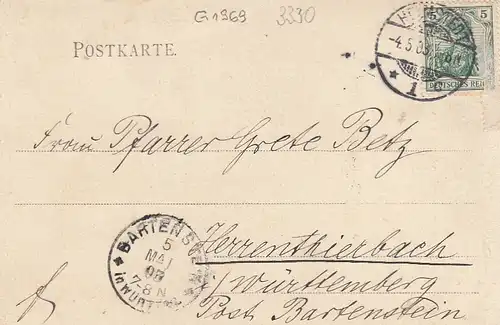 G 1969 3330
POSTKARTE.
5
-4.5.
DEUTSCHES REICH
1
Frau Pfarrer Grete Betz
BARTENSTEIN
5
MAI
7-8 N
in WÜRTT
Herrenthierbach
/Württemberg
Post Bartenstein